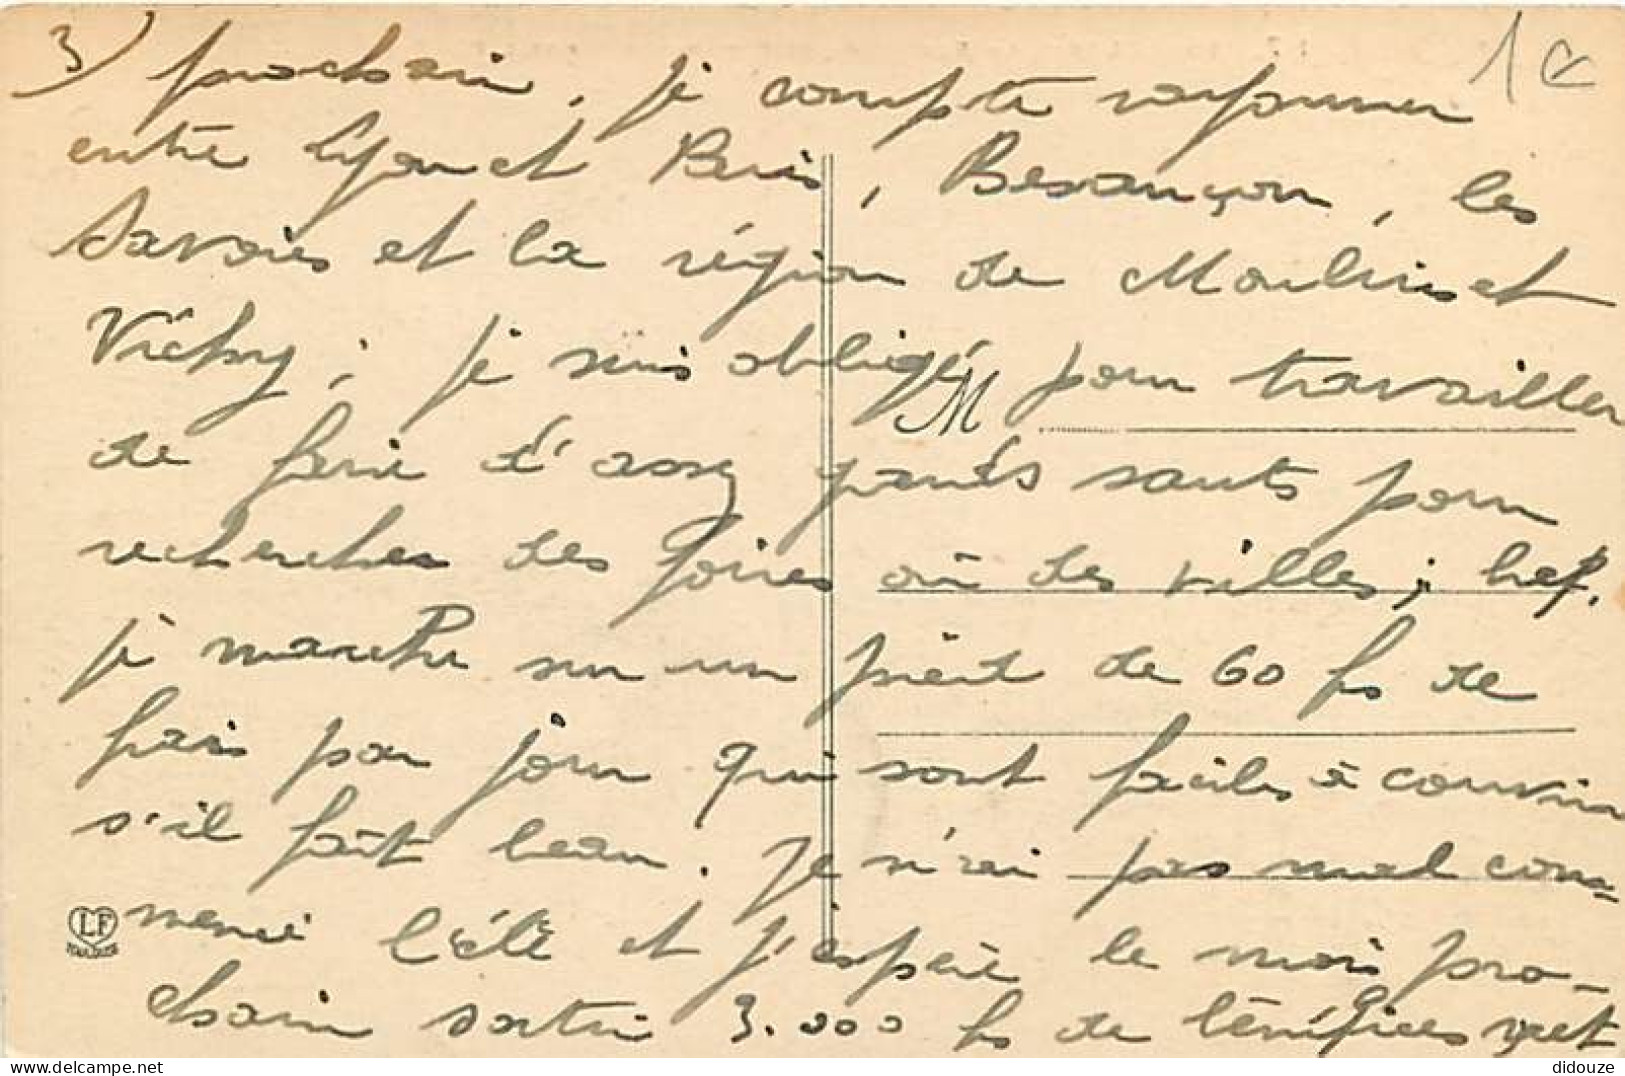 3) prochain, je compte rayonner 1€
entre Lyon et Paris, Besançon, les
Savoies et la région de Moulins et
Vichy ; je suis obligé pour travailler
M
de faire d'assez grands sauts pour
rechercher des foires ou des villes ; bref.
je marche sur un pied de 60 frs de
frais par jour qui sont faciles à couvrir
s'il fait beau. Je n'ai pas mal com-
mencé l'été et j'espère le mois pro-
chain sortir 3.000 frs de bénéfices net
LF
TOULOUSE
www.delcampe.net
didouze